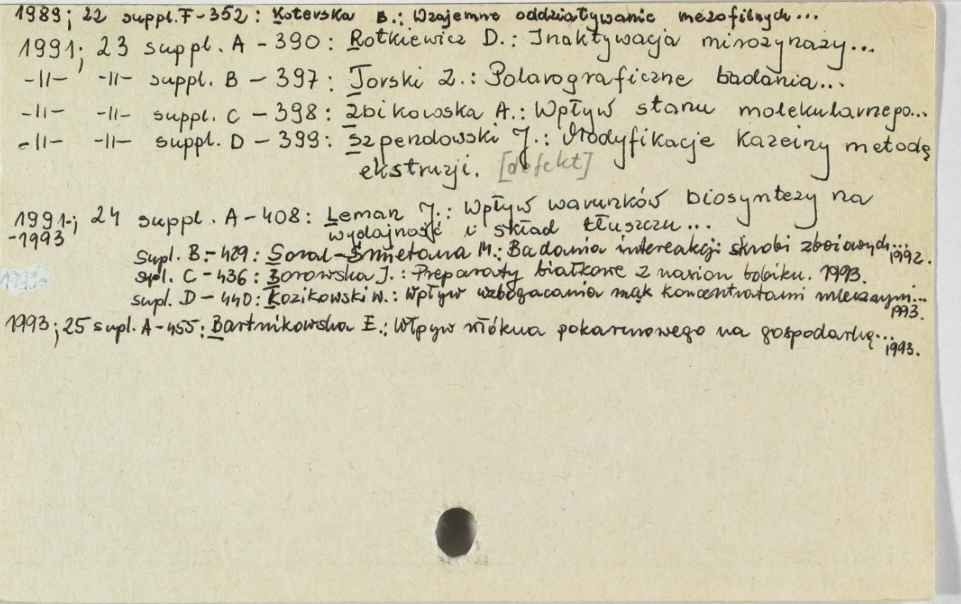 1989; 22 suppl. F - 352 : Koterska B.: Wzajemne oddziaływanie mezofilnych...
1991; 23 suppl. A - 390 : Rotkiewicz D.: Inaktywacja mirozynazy...
-||- -||- suppl. B - 397 : Jorski Z.: Polarograficzne badania...
-||- -||- suppl. C - 398 : Zbikowska A.: Wpływ stanu molekularnego...
-||- -||- suppl. D - 399 : Szpendowski J.: Modyfikacje kazeiny metodą
ekstruzji. [defekt]
1991-; 24 suppl. A - 408 : Leman J.: Wpływ warunków biosyntezy na
-1993 wydajność i skład tłuszczu...
Supl. B - 429 : Soral-Śmietana M.: Badania intereakcji skrobi zbożowych... 1992.
spl. C - 436 : Borowska J.: Preparaty białkowe z nasion bobiku. 1993.
supl. D - 440 : Kozikowski W.: Wpływ wzbogacania mąk koncentratami mlecznym...
1993.
1993; 25 supl. A - 455 : Bartnikowska E.: Włpyw włókna pokarmowego na gospodarkę...
1993.